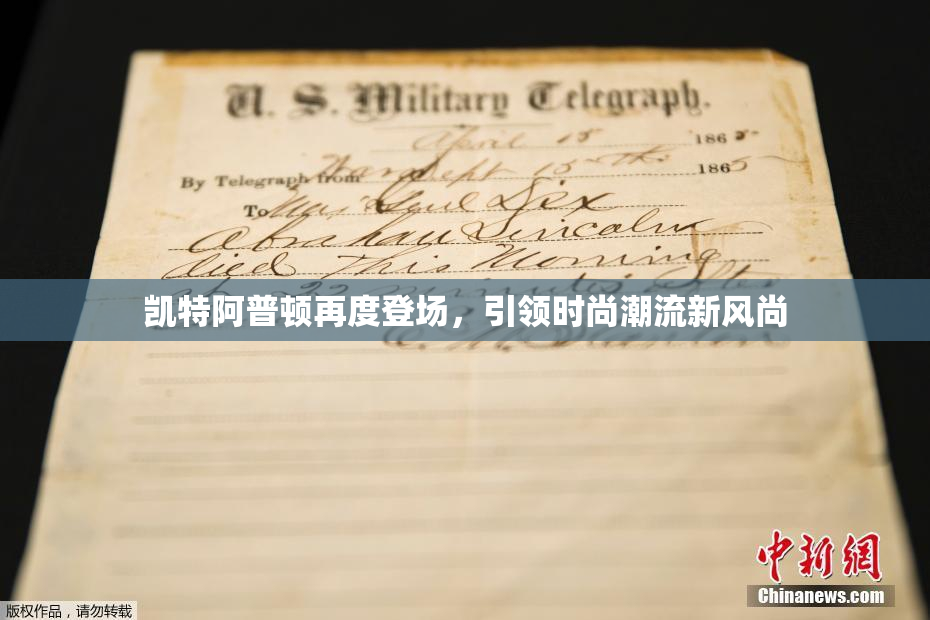 U. S. Military Telegraph.
April 15 1865
By Telegraph from War Dept 15th 1865
To Maj Genl Dix
Abraham Lincoln
died This Morning
22 minutes after
凯特阿普顿再度登场，引领时尚潮流新风尚
E. M. Stanton
中新網
Chinanews.com
版权作品，请勿转载